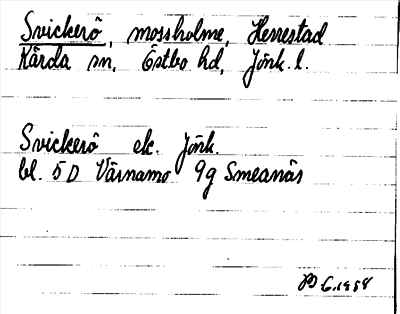 Svickerö, mossholme, Herrestad
Kärda sn, Östbo hd, Jönk. l.
Svickerö ek. Jönk.
bl. 5 D Värnamo 9g Smeanäs
1958